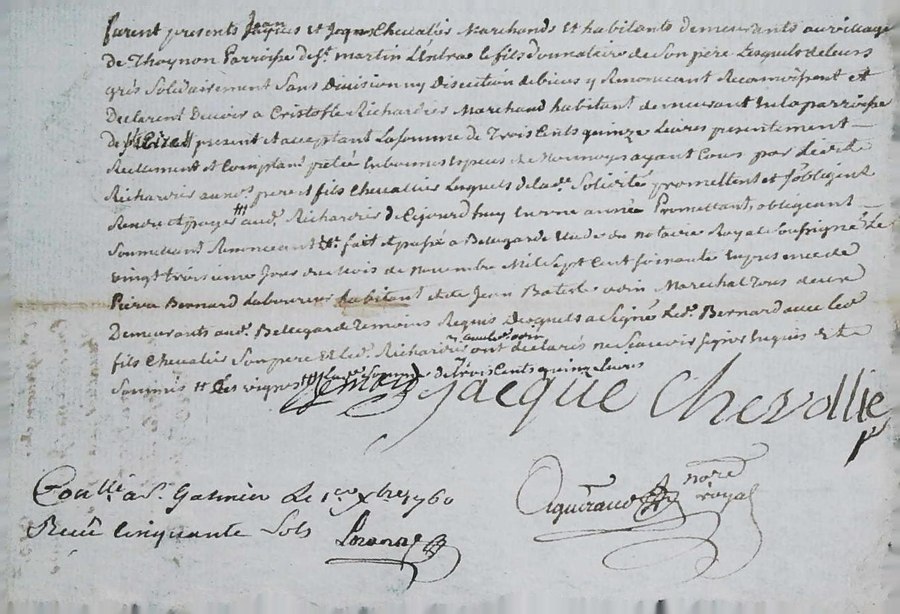 furent presents Jean Jacques et Jean Chevallier Marchands et habitants demeurants au village
de Thoynon Parroisse de St. martin Lestras le fils donnataire de son pere Lesquels de leurs
grés Solidairement Sans Division ny Discution de bien y Renoncant Reconnoissent et
Declarent Devoir a Cristofle Richardier Marchand habitant demeurant en la parroisse
de present et acceptant La somme de Trois Cents quinze Livres presentement
Reellement et Comptant en bonnes Especes de Monnoye ayant Cours par Led.
Richardier aux. pere et fils Chevallier Lesquels de lad. Solidité promettent et s'obligent
Rendre et payer aud. Richardier de Cejourd'huy en une année Promettant, obligeant
Soumettant Renoncant &c. fait et passé a Bellegarde Etude du notaire Royal Soussigné Le
vingt trois jour du Mois de novembre Mil Sept Cent soixante en presence de
Pierre Bernard Laboureur habitant et de Jean Batiste Marechal Tous deux
Demeurants aud. Bellegarde Temoins Requis Desquels a Signé Led. Bernard avec Led.
fils Chevalier Son pere et Led. Richardier ont declarés ne Scavoir signer Enquis et
Sommés lad. Somme de trois Cents quinze Livres
Bernard Jacque Chevallier
Con.lle a St. Galmier Le 1er Xbre 1760
Receu Cinquante Sols
Aguiraud nore royal